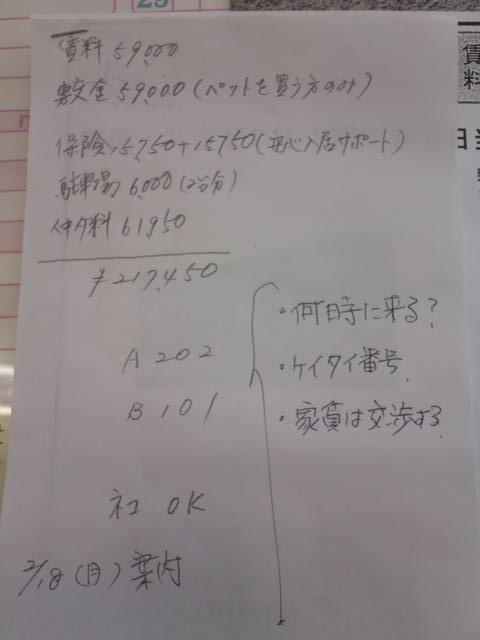 賃料 59,000
敷金 59,000 (ペットを買う方のみ)
保険 15,750+15,750 (安心入居サポート)
駐車場 6,000 (2台分)
仲介料 61,950
¥217,450
A 202
B 101
ネコ OK
2/18 (月) 案内
・何日時に来る?
・ケイタイ番号
・家賃は交渉する
賃料